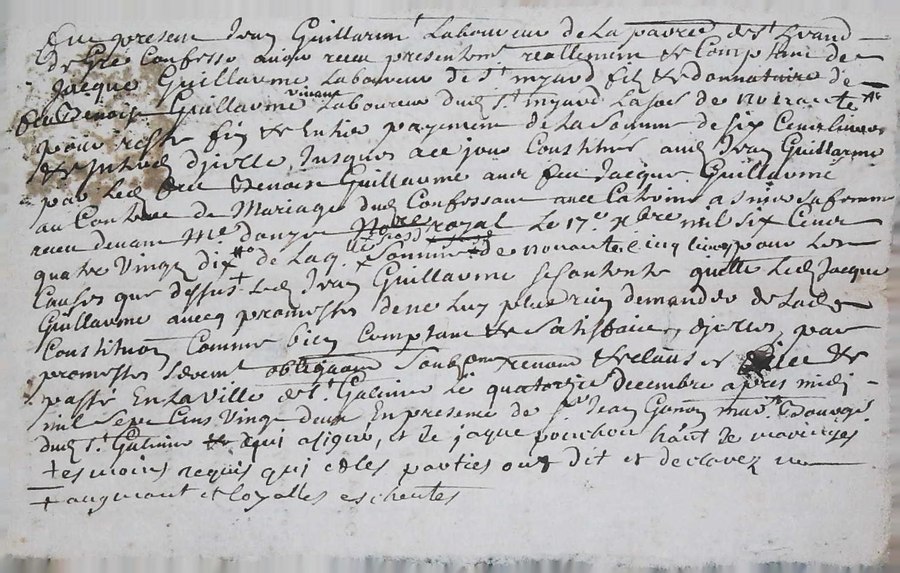 Fut present Jean Guillarmé Laboureur de La parroe de St Evand
de Gré Confesse avoir receu presentemt reallement et Comptant de
Jacque Guillaume Laboureur de St myard fils et donnataire de
feu Benoist Guillaume vivant Laboureur dud St myard La so de nonante
pour reste fin et Entier payement de La Somme de six Cent livres
et Interes d'jcelle Jusques a ce jour Constitué aud Jean Guillarme
par led feu Benoist Guillaume avec feu Jacque Guillaume
au Contract de Mariage dud Confessant avec Catherine sa femme
receu devant Me Notre royal Le 17e xbre mil six Cent
quatre vingt dix de Laq Somme de nonante cinq livres pour Les
Causes que dessus led Jean Guillaume se Contente quitte led Jacque
Guillaume avecq promesses de ne Luy plus rien demander de Lad
Constitution Comme bien Comptant et Satisfaict d'jcelle, par
promesses serment obligaon Soubson renon et claus et
passé En La Ville de St Galmier le quatorzie decembre apres midj
mil Sept Cens Vingt deux En presence de Sr Jean Gonon mar Bourge
dud St Galmier qui a signé, et de jaque pouchon habt de
temoins requis qui et les parties ont dit et declarez ne
+ augment et loyalles escheutes